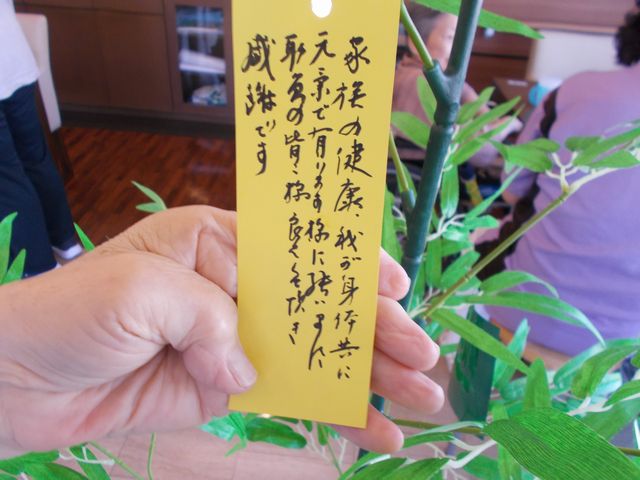 家族の健康、我が身体共に
元気で有ります様に願います
職員の皆、様良くを頂き
感謝です